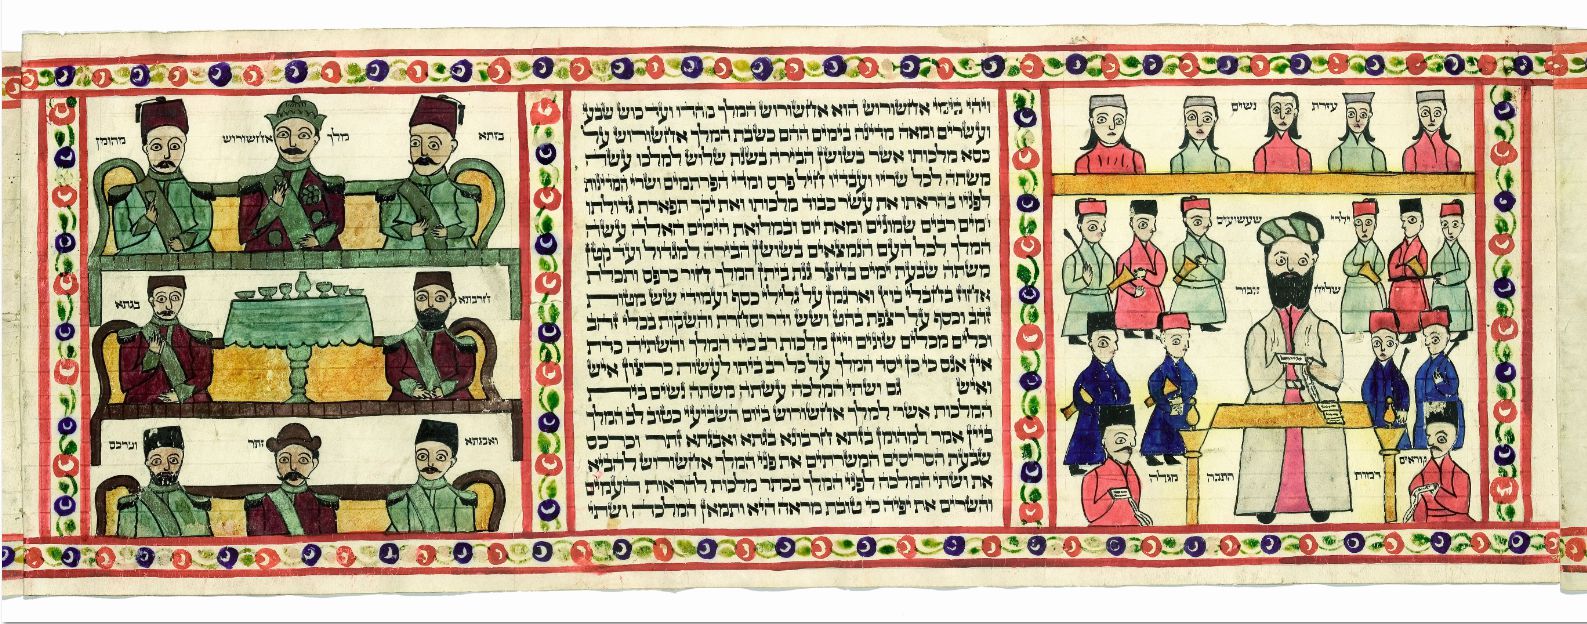 עזרת נשים
ילדי שעשועים
שליח צבור
קוראים דמות התבה מגלה
ויהי בימי אחשורוש הוא אחשורוש המלך מהדו ועד כוש שבע
ועשרים ומאה מדינה בימים ההם כשבת המלך אחשורוש על
כסא מלכותו אשר בשושן הבירה בשנת שלוש למלכו עשה
משתה לכל שריו ועבדיו חיל פרס ומדי הפרתמים ושרי המדינות
לפניו בהראתו את עשר כבוד מלכותו ואת יקר תפארת גדולתו
ימים רבים שמונים ומאת יום ובמלואת הימים האלה עשה
המלך לכל העם הנמצאים בשושן הבירה למגדול ועד קטן
משתה שבעת ימים בחצר גנת ביתן המלך חור כרפס ותכלת
אחוז בחבלי בוץ וארגמן על גלילי כסף ועמודי שש מטות
זהב וכסף על רצפת בהט ושש ודר וסחרת והשקות בכלי זהב
וכלים מכלים שונים ויין מלכות רב כיד המלך והשתיה כדת
אין אנס כי כן יסד המלך על כל רב ביתו לעשות כרצון איש
ואיש גם ושתי המלכה עשתה משתה נשים בית
המלכות אשר למלך אחשורוש ביום השביעי כטוב לב המלך
ביין אמר למהומן בזתא חרבונא בגתא ואבגתא זתר וכרכס
שבעת הסריסים המשרתים את פני המלך אחשורוש להביא
את ושתי המלכה לפני המלך בכתר מלכות להראות העמים
והשרים את יפיה כי טובת מראה היא ותמאן המלכה ושתי
בזתא מלך אחשורוש מהומן
חרבונא בגתא
ואבגתא זתר וכרכס